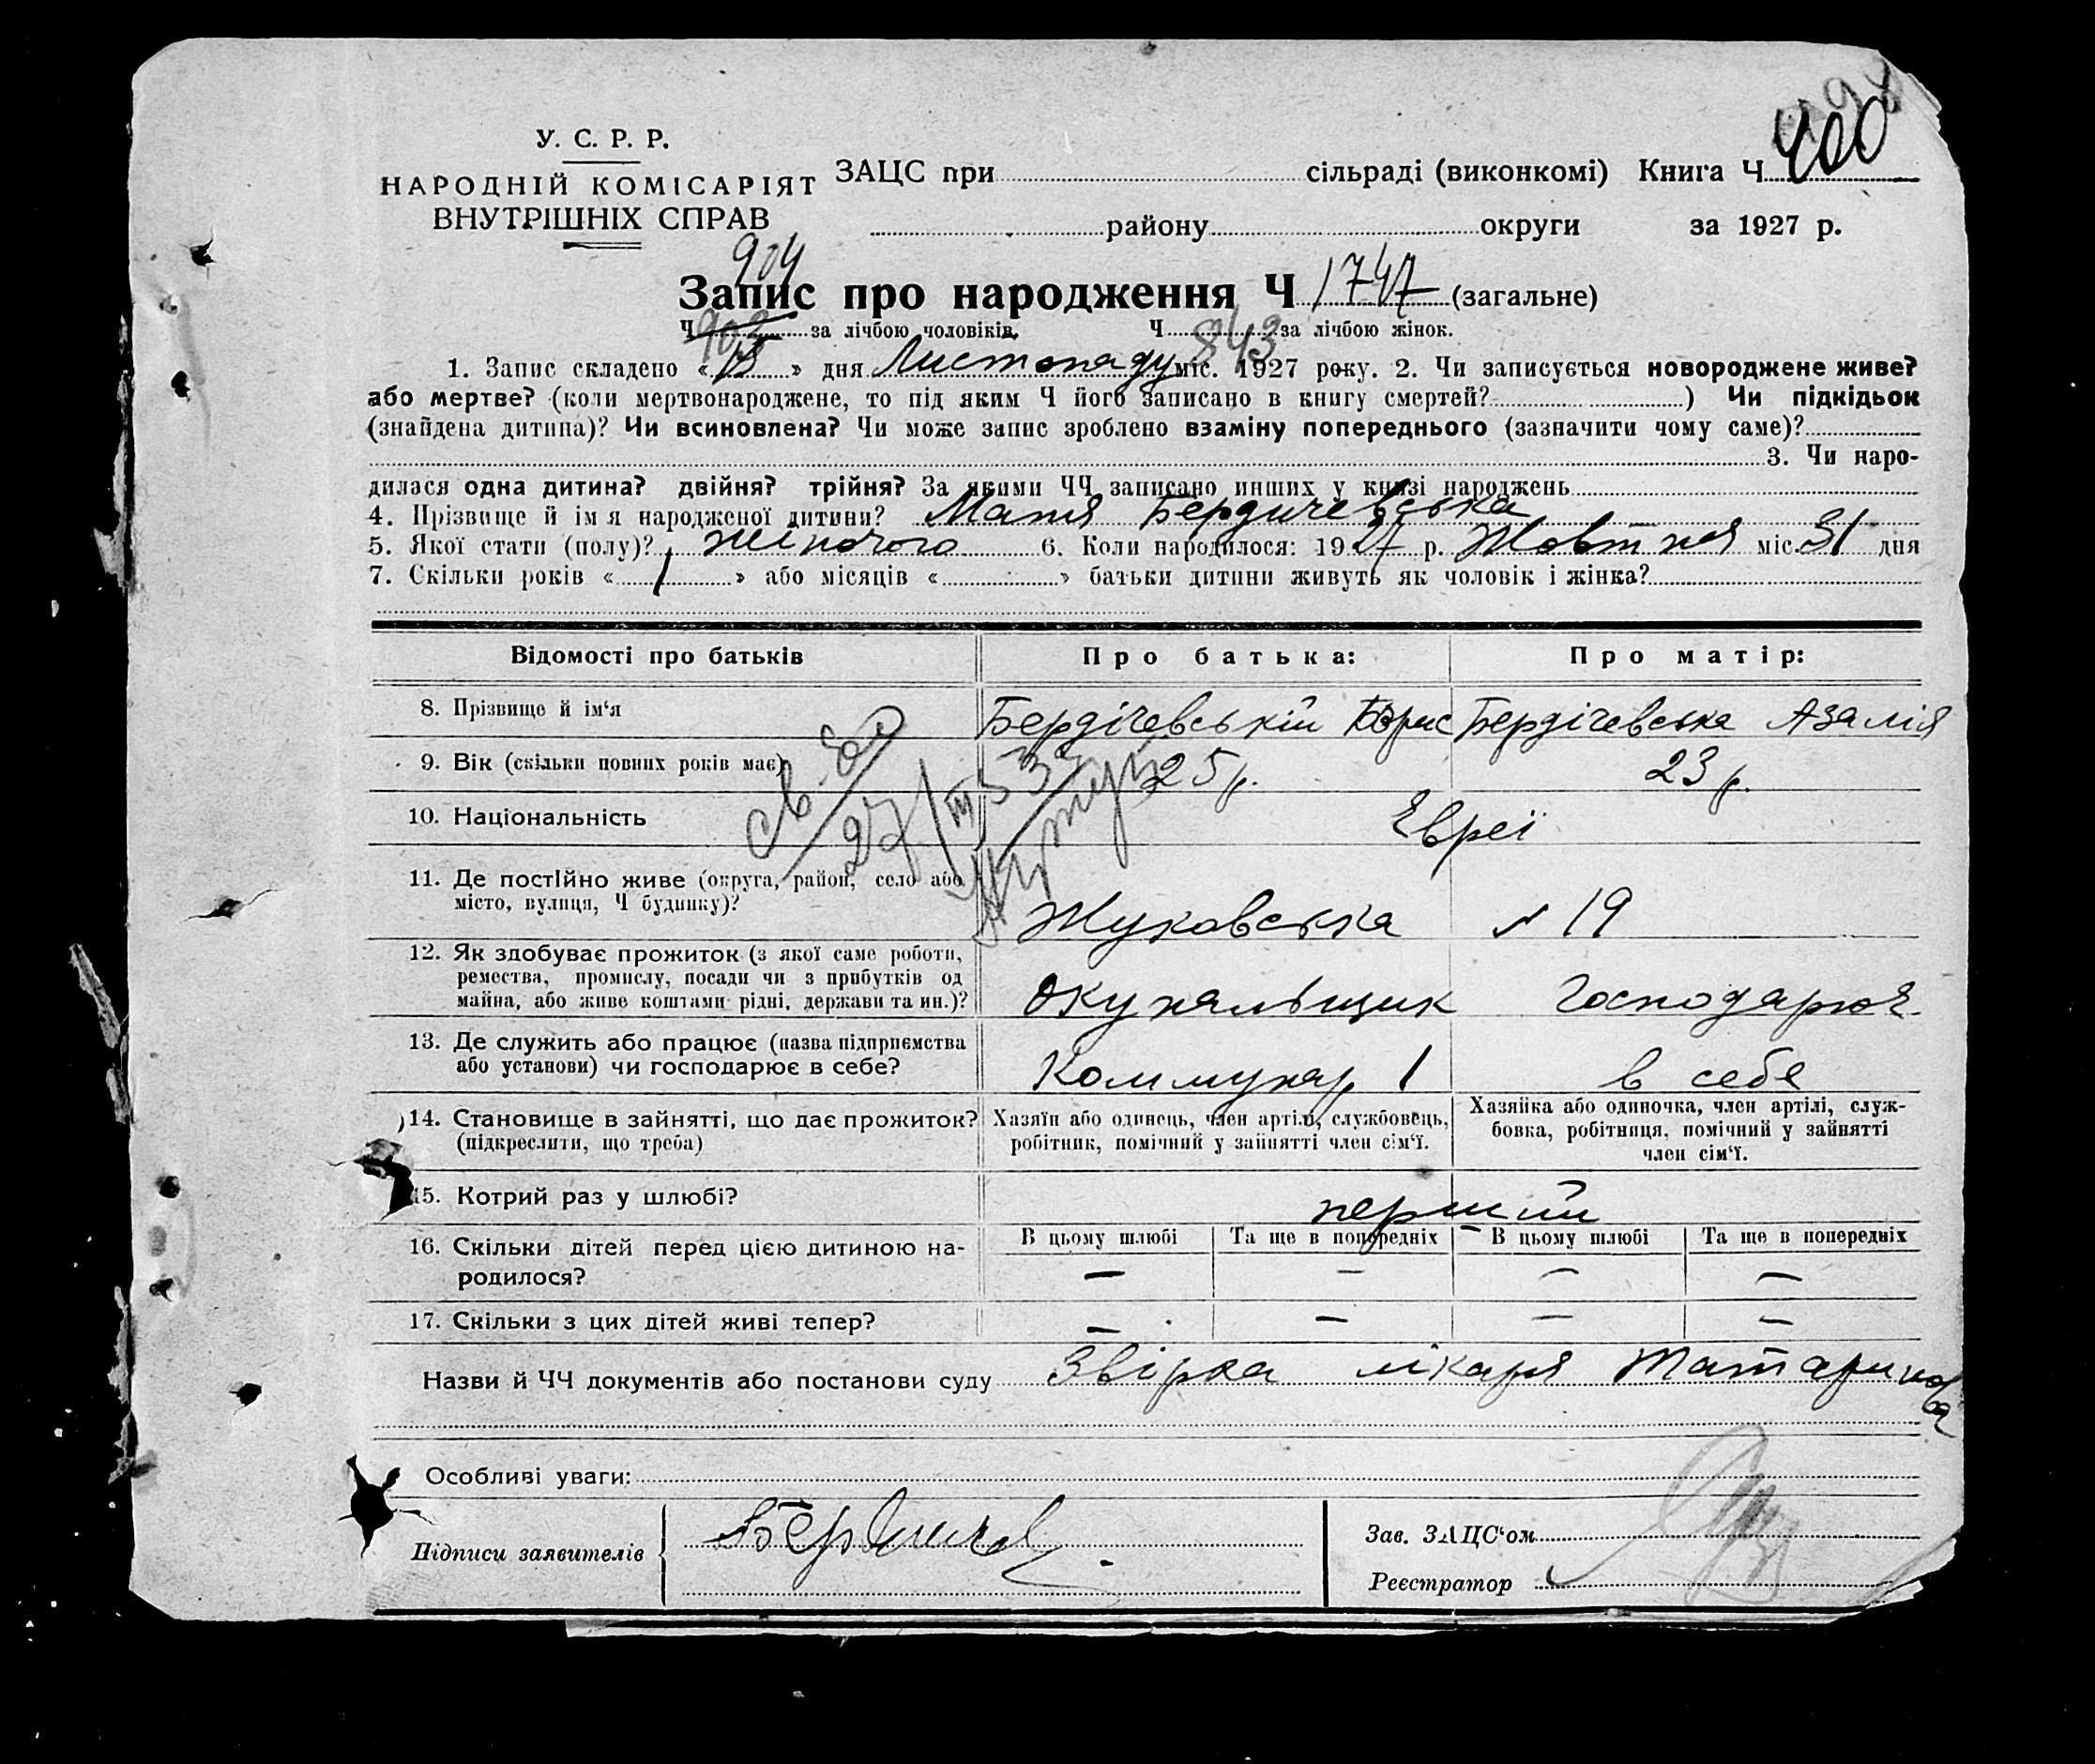 400
У. С. Р. Р.
НАРОДНІЙ КОМІСАРІЯТ
ВНУТРІШНІХ СПРАВ
ЗАЦС при сільраді (виконкомі) Книга Ч
району округи за 1927 р.
904
Запис про народження Ч 1747 (загальне)
Ч 903 за лічбою чоловіків. Ч 843 за лічбою жінок.
1. Запис складено « » дня Листопаду міс. 1927 року. 2. Чи записується новороджене живе?
або мертве? (коли мертвонароджене, то під яким Ч його записано в книгу смертей? ) Чи підкідьок
(знайдена дитина)? Чи всиновлена? Чи може запис зроблено взаміну попереднього (зазначити чому саме)?
3. Чи наро-
дилася одна дитина? двійня? трійня? За якими ЧЧ записано инших у книзі народжень
4. Прізвище й імя народженої дитини? Мая Бердичевська
5. Якої стати (полу)? жіночого 6. Коли народилося: 1927 р. Жовтня міс. 31 дня
7. Скільки років « 1 » або місяців « » батьки дитини живуть як чоловік і жінка?
Відомості про батьків Про батька: Про матір:
8. Прізвище й ім‘я Бердічевській Борис Бердічевська Азалія
9. Вік (скільки повних років має) 25 р. 23 р.
10. Національність Євреї
св-во
27/III 33
11. Де постійно живе (округа, район, село або
місто, вулиця, Ч будинку)? Жуковська № 19
12. Як здобуває прожиток (з якої саме роботи,
ремества, промислу, посади чи з прибутків од
майна, або живе коштами рідні, держави та ин.)? Окуняльщик Господарює
13. Де служить або працює (назва підприємства
або установи) чи господарює в себе? Коммунар 1 в себе
14. Становище в зайнятті, що дає прожиток?
(підкреслити, що треба)
Хазяїн або одинець, член артілі, службовець,
робітник, помічний у зайнятті член сім‘ї.
Хазяйка або одиночка, член артілі, служ-
бовка, робітниця, помічний у зайнятті
член сім‘ї.
15. Котрий раз у шлюбі? перший
В цьому шлюбі Та ще в попередніх В цьому шлюбі Та ще в попередніх
16. Скільки дітей перед цією дитиною на-
родилося? — — — —
17. Скільки з цих дітей живі тепер? — — — —
Назви й ЧЧ документів або постанови суду Звірка лікаря Татаринова
Особливі уваги:
Підписи заявителів
Зав. ЗАЦС‘ом
Реєстратор